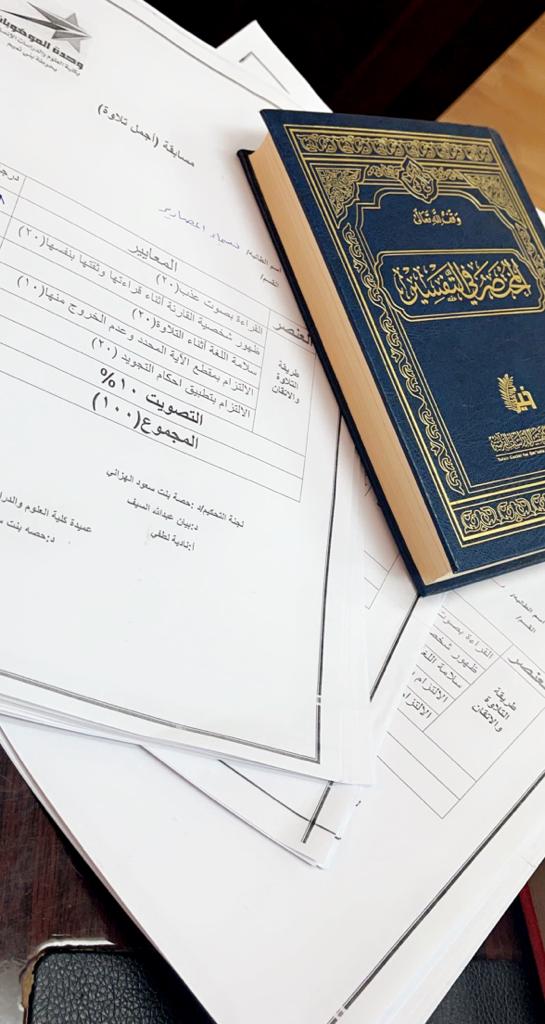 وحدة الموهوبات
بكلية العلوم والدراسات الإنسانية
بحوطة بني تميم
مسابقة (أجمل تلاوة)
اسم الطالبة/
القسم/
العنصر
المعايير
طريقة التلاوة والاتقان
القراءة بصوت عذب(٢٠)
ظهور شخصية القارئة أثناء قراءتها وثقتها بنفسها(٢٠)
سلامة اللغة أثناء التلاوة(٢٠)
الالتزام بمقطع الآية المحدد وعدم الخروج منها(١٠)
الالتزام بتطبيق احكام التجويد (٢٠)
التصويت ١٠%
المجموع(١٠٠)
لجنة التحكيم/د :حصة بنت سعود الهزاني
د:بيان عبدالله السيف
أ:نادية لطفي
عميدة كلية العلوم
د:حصه بنت
وقف لله تعالى
المختصر في التفسير
اسم الطالبة/
القسم/
طريقة
التلاوة
والاتقان
القراءة بصوت
سلامة
الالتزام